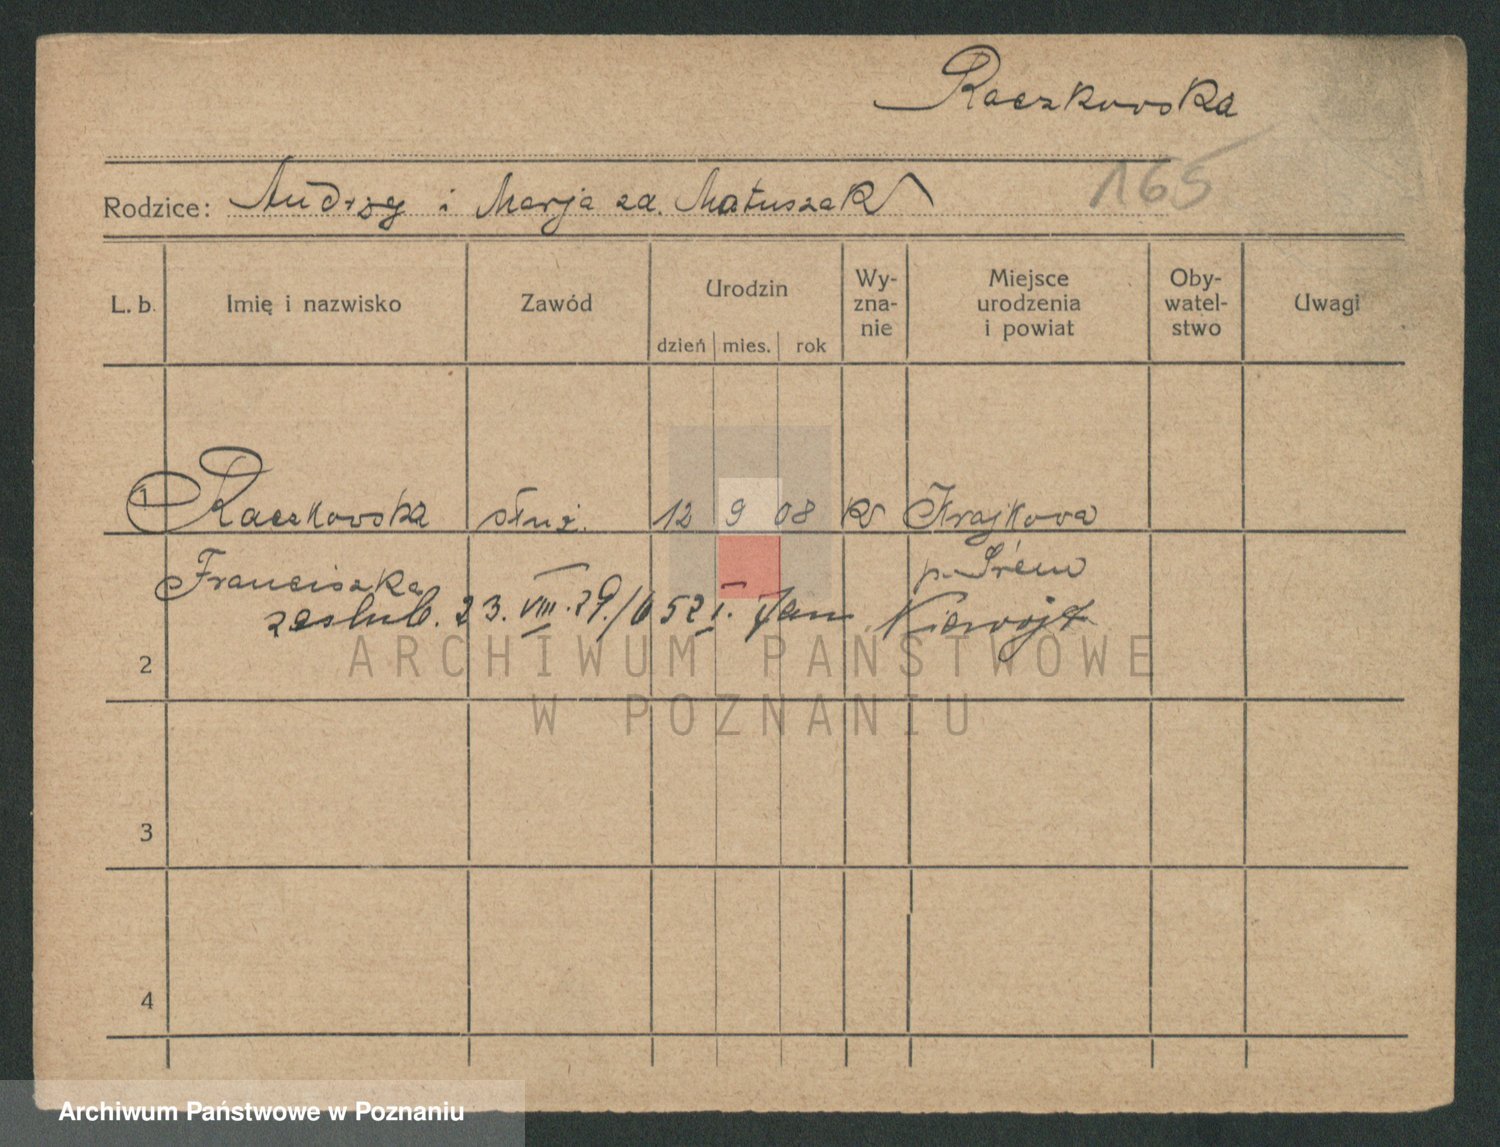 Raczkowska
165
Rodzice: Andrzej i Marja za. Matuszak
L. b. Imię i nazwisko Zawód Urodzin dzień mies. rok Wy-zna-nie Miejsce urodzenia i powiat Oby-watel-stwo Uwagi
1 Raczkowska służ. 12 9 08 k Krajkowa
Franciszka p. Śrem
zaślub. 23. VIII. 29. / 652 I. Jan
2
3
4
ARCHIWUM PAŃSTWOWE
W POZNANIU
Archiwum Państwowe w Poznaniu